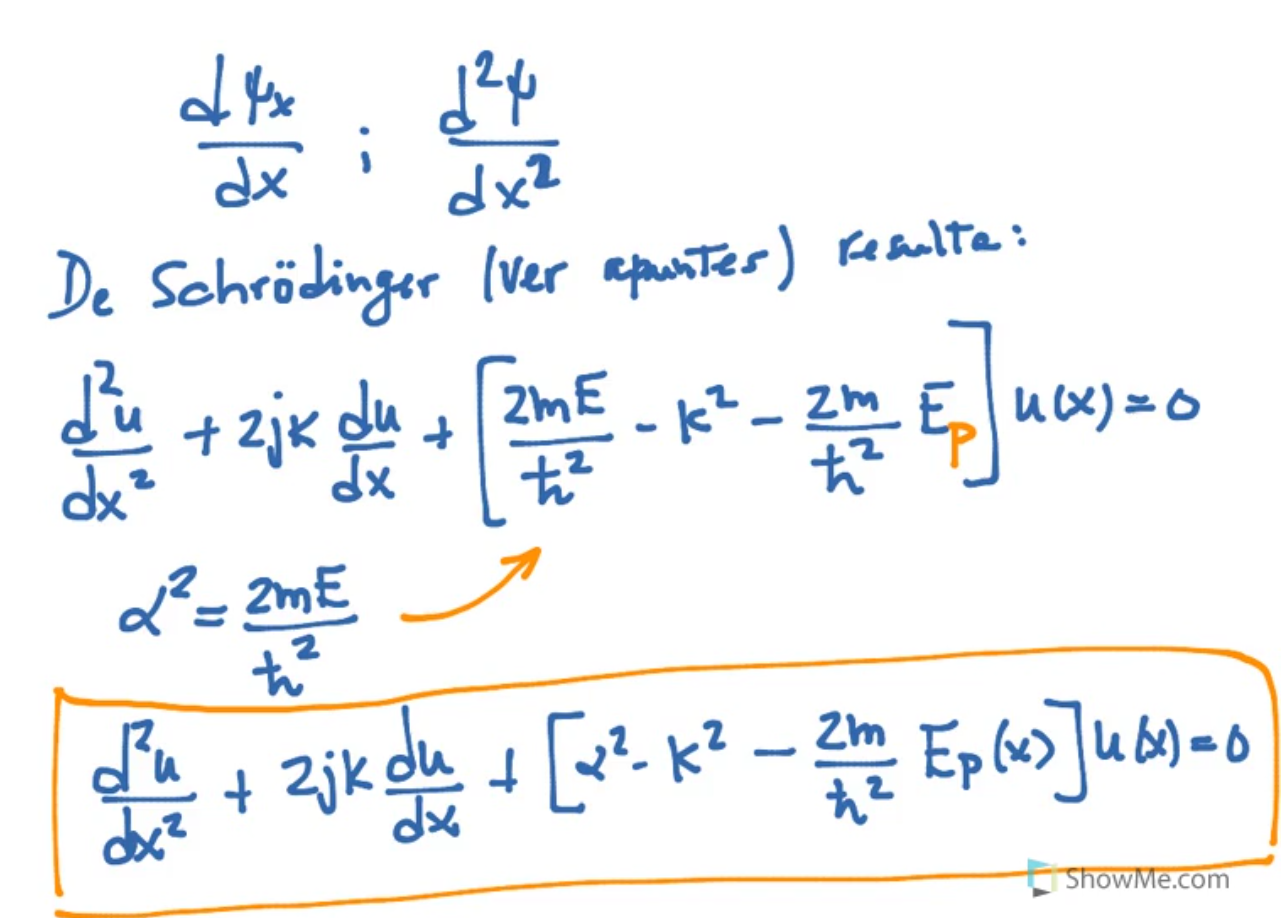 dψₓ/dx ; d²ψ/dx²
De Schrödinger (ver apuntes) resulta:
d²u/dx² + 2jk du/dx + [2mE/ħ² - k² - 2m/ħ² E_p] u(x) = 0
α² = 2mE/ħ²
d²u/dx² + 2jk du/dx + [α² - k² - 2m/ħ² E_p(x)] u(x) = 0
ShowMe.com